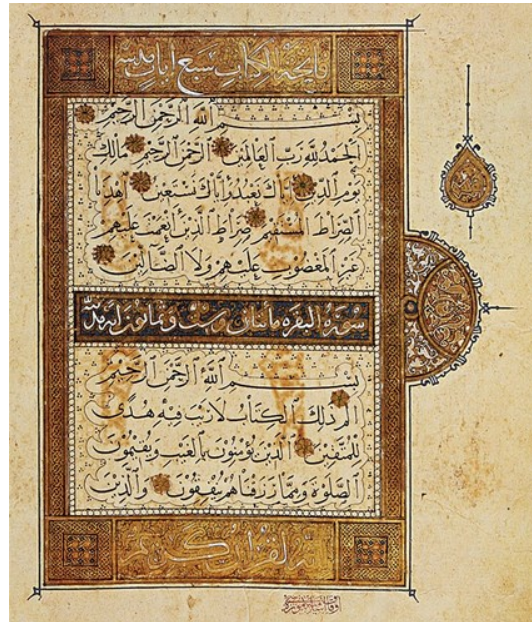 فاتحة الكتاب سبع ايات
بِسْمِ ٱللَّهِ ٱلرَّحْمَٰنِ ٱلرَّحِيمِ
ٱلْحَمْدُ لِلَّهِ رَبِّ ٱلْعَالَمِينَ ٱلرَّحْمَٰنِ ٱلرَّحِيمِ مَالِكِ
يَوْمِ ٱلدِّينِ إِيَّاكَ نَعْبُدُ وَإِيَّاكَ نَسْتَعِينُ ٱهْدِنَا
ٱلصِّرَاطَ ٱلْمُسْتَقِيمَ صِرَاطَ ٱلَّذِينَ أَنْعَمْتَ عَلَيْهِمْ
غَيْرِ ٱلْمَغْضُوبِ عَلَيْهِمْ وَلَا ٱلضَّآلِّينَ
سورة البقرة مائتان وست وثمانون اية مدنية
بِسْمِ ٱللَّهِ ٱلرَّحْمَٰنِ ٱلرَّحِيمِ
الم ذَلِكَ ٱلْكِتَابُ لَا رَيْبَ فِيهِ هُدًى
لِلْمُتَّقِينَ ٱلَّذِينَ يُؤْمِنُونَ بِٱلْغَيْبِ وَيُقِيمُونَ
ٱلصَّلَوٰةَ وَمِمَّا رَزَقْنَاهُمْ يُنْفِقُونَ وَٱلَّذِينَ
انه لقران كريم